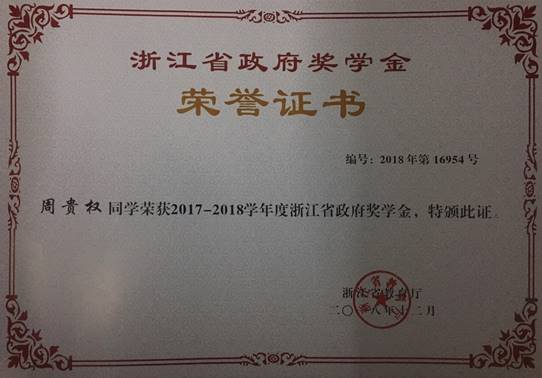 浙江省政府奖学金
荣誉证书
编号：2018年第16954号
周贵权 同学荣获2017-2018学年度浙江省政府奖学金，特颁此证。
浙江省教育厅
二〇一八年十二月